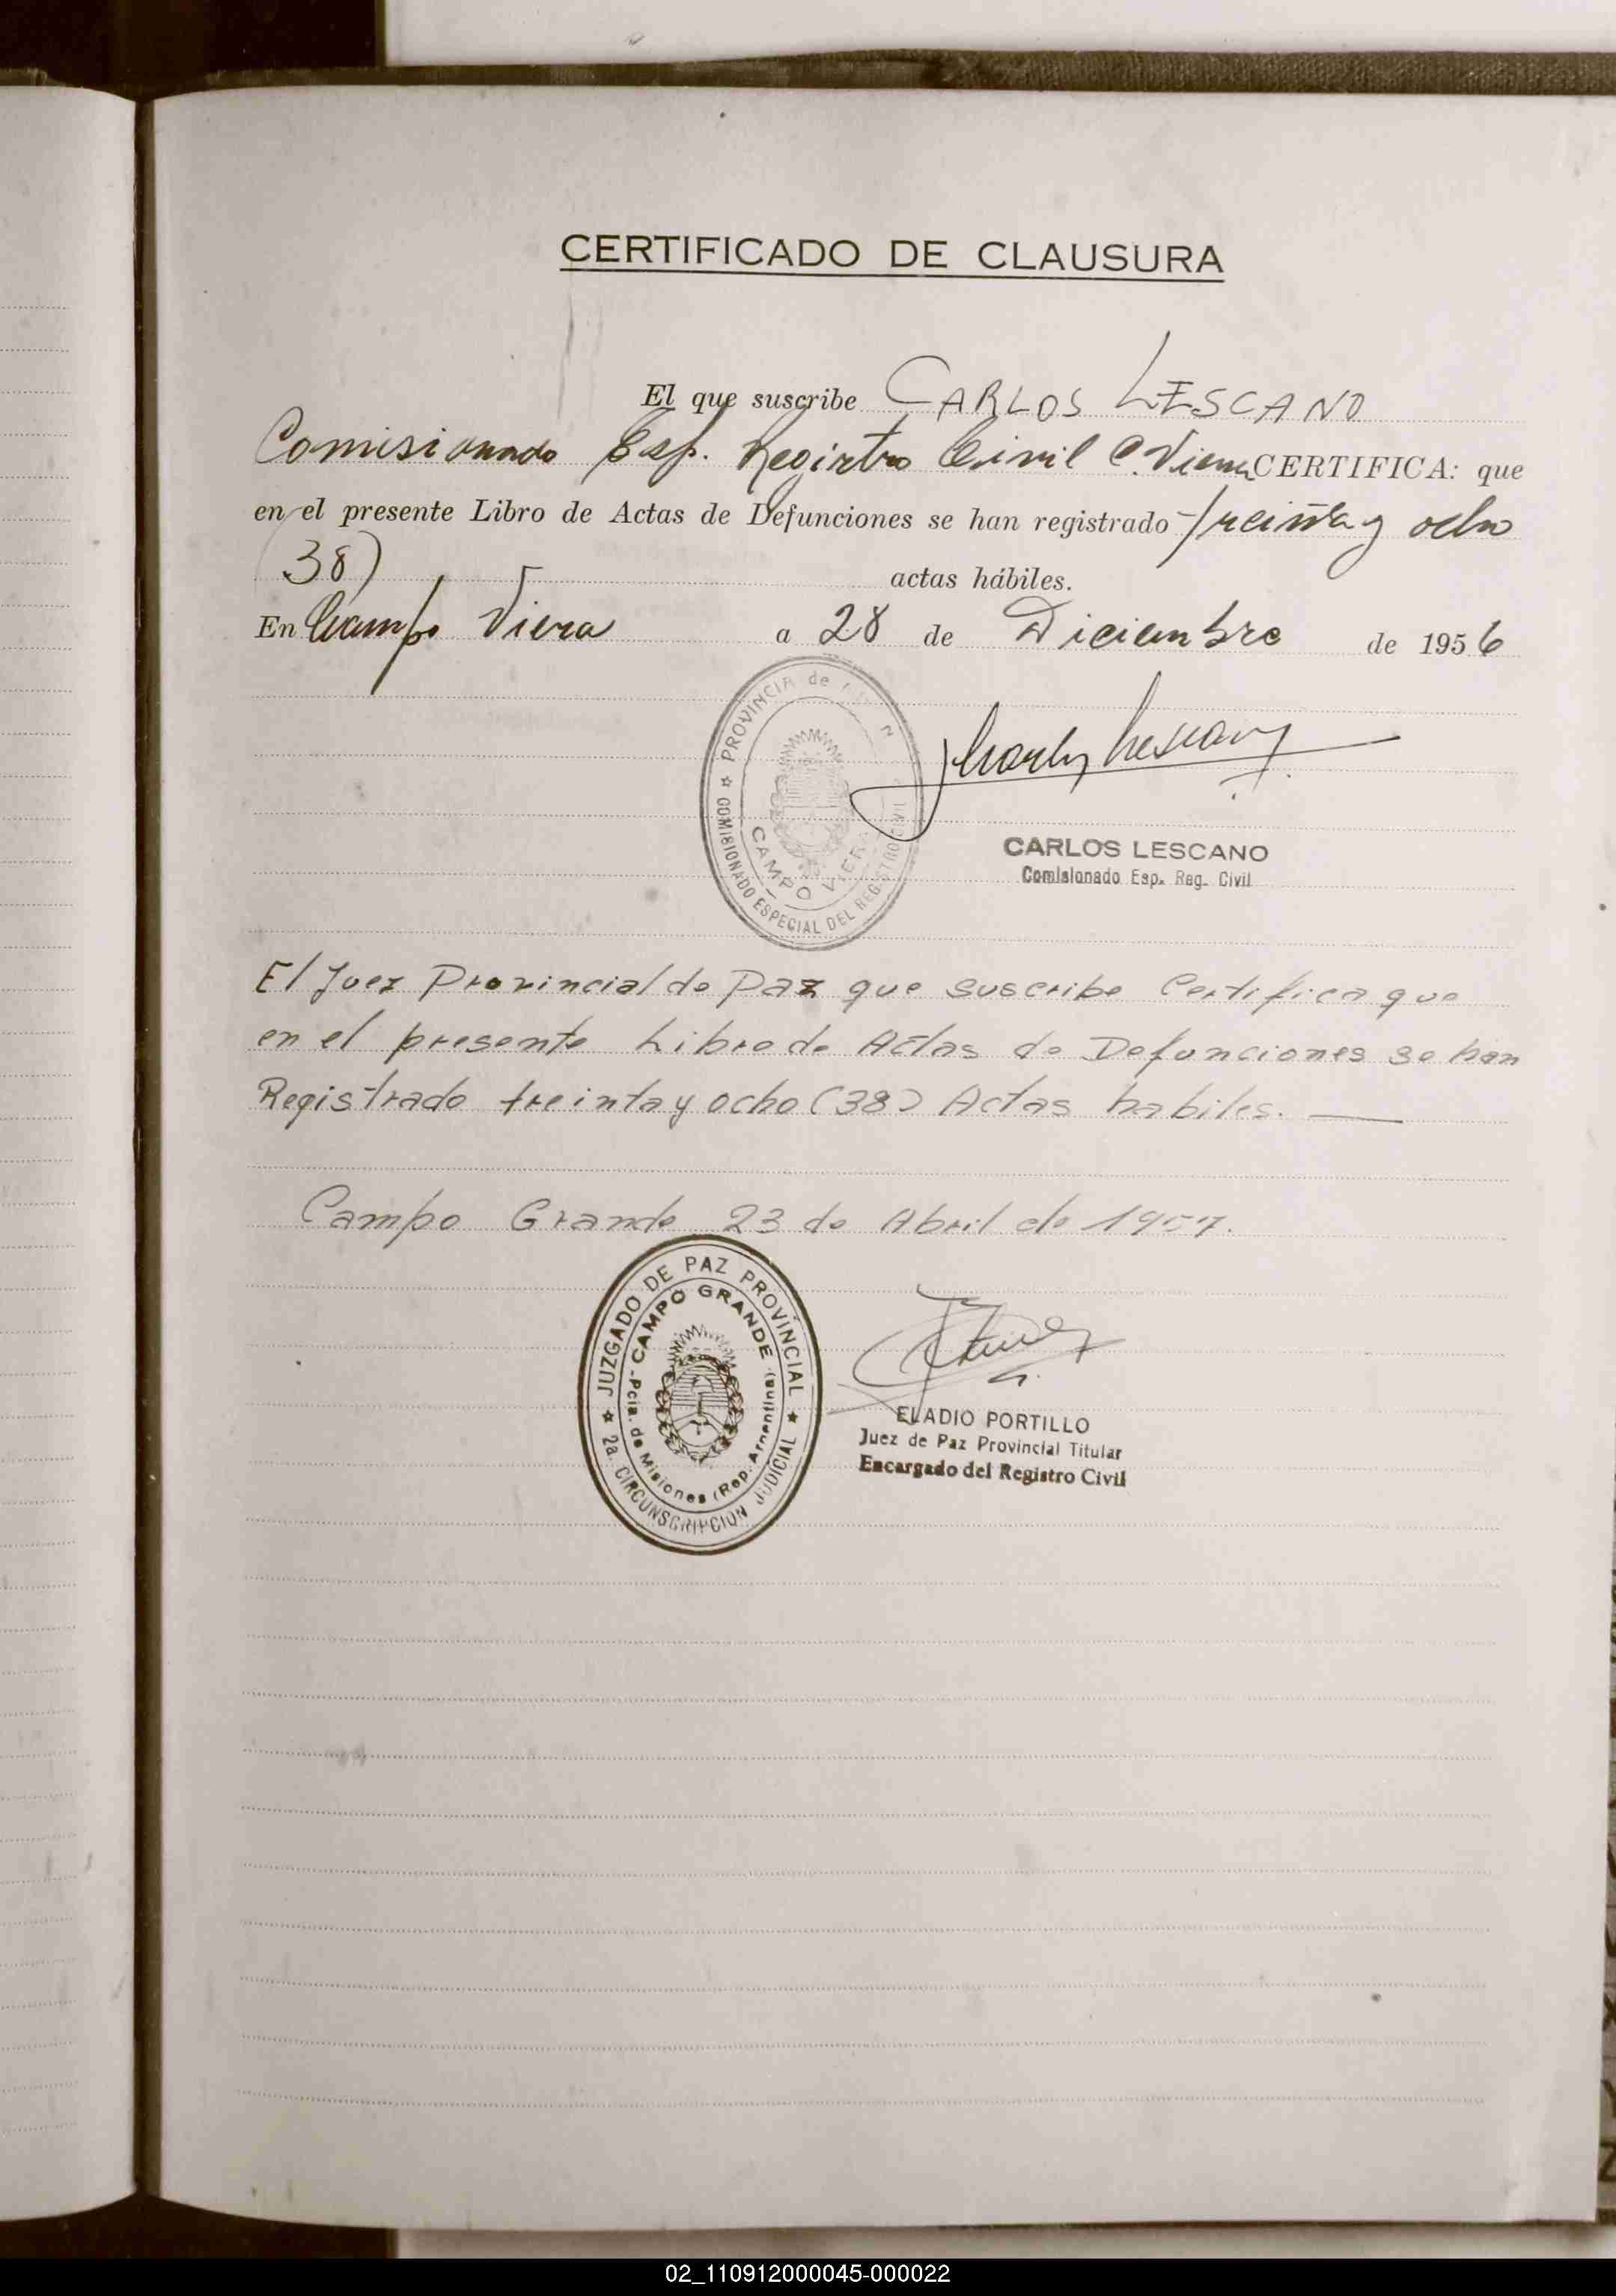 CERTIFICADO DE CLAUSURA
El que suscribe CARLOS LESCANO
Comisionado Esp. Registro Civil C. Viera CERTIFICA: que
en el presente Libro de Actas de Defunciones se han registrado treinta y ocho
(38) actas hábiles.
En Campo Viera a 28 de Diciembre de 1956
PROVINCIA de
COMISIONADO ESPECIAL DEL REGISTRO CIVIL
CAMPO VIERA
Carlos Lescano
CARLOS LESCANO
Comisionado Esp. Reg. Civil
El Juez Provincial de Paz que suscribe Certifica que
en el presente Libro de Actas de Defunciones se han
Registrado treinta y ocho (38) Actas habiles.
Campo Grande 23 de Abril de 1957.
JUZGADO DE PAZ PROVINCIAL
2a. CIRCUNSCRIPCION JUDICIAL
CAMPO GRANDE
-Pcia. de Misiones (Rep. Argentina)-
ELADIO PORTILLO
Juez de Paz Provincial Titular
Encargado del Registro Civil
02_110912000045-000022